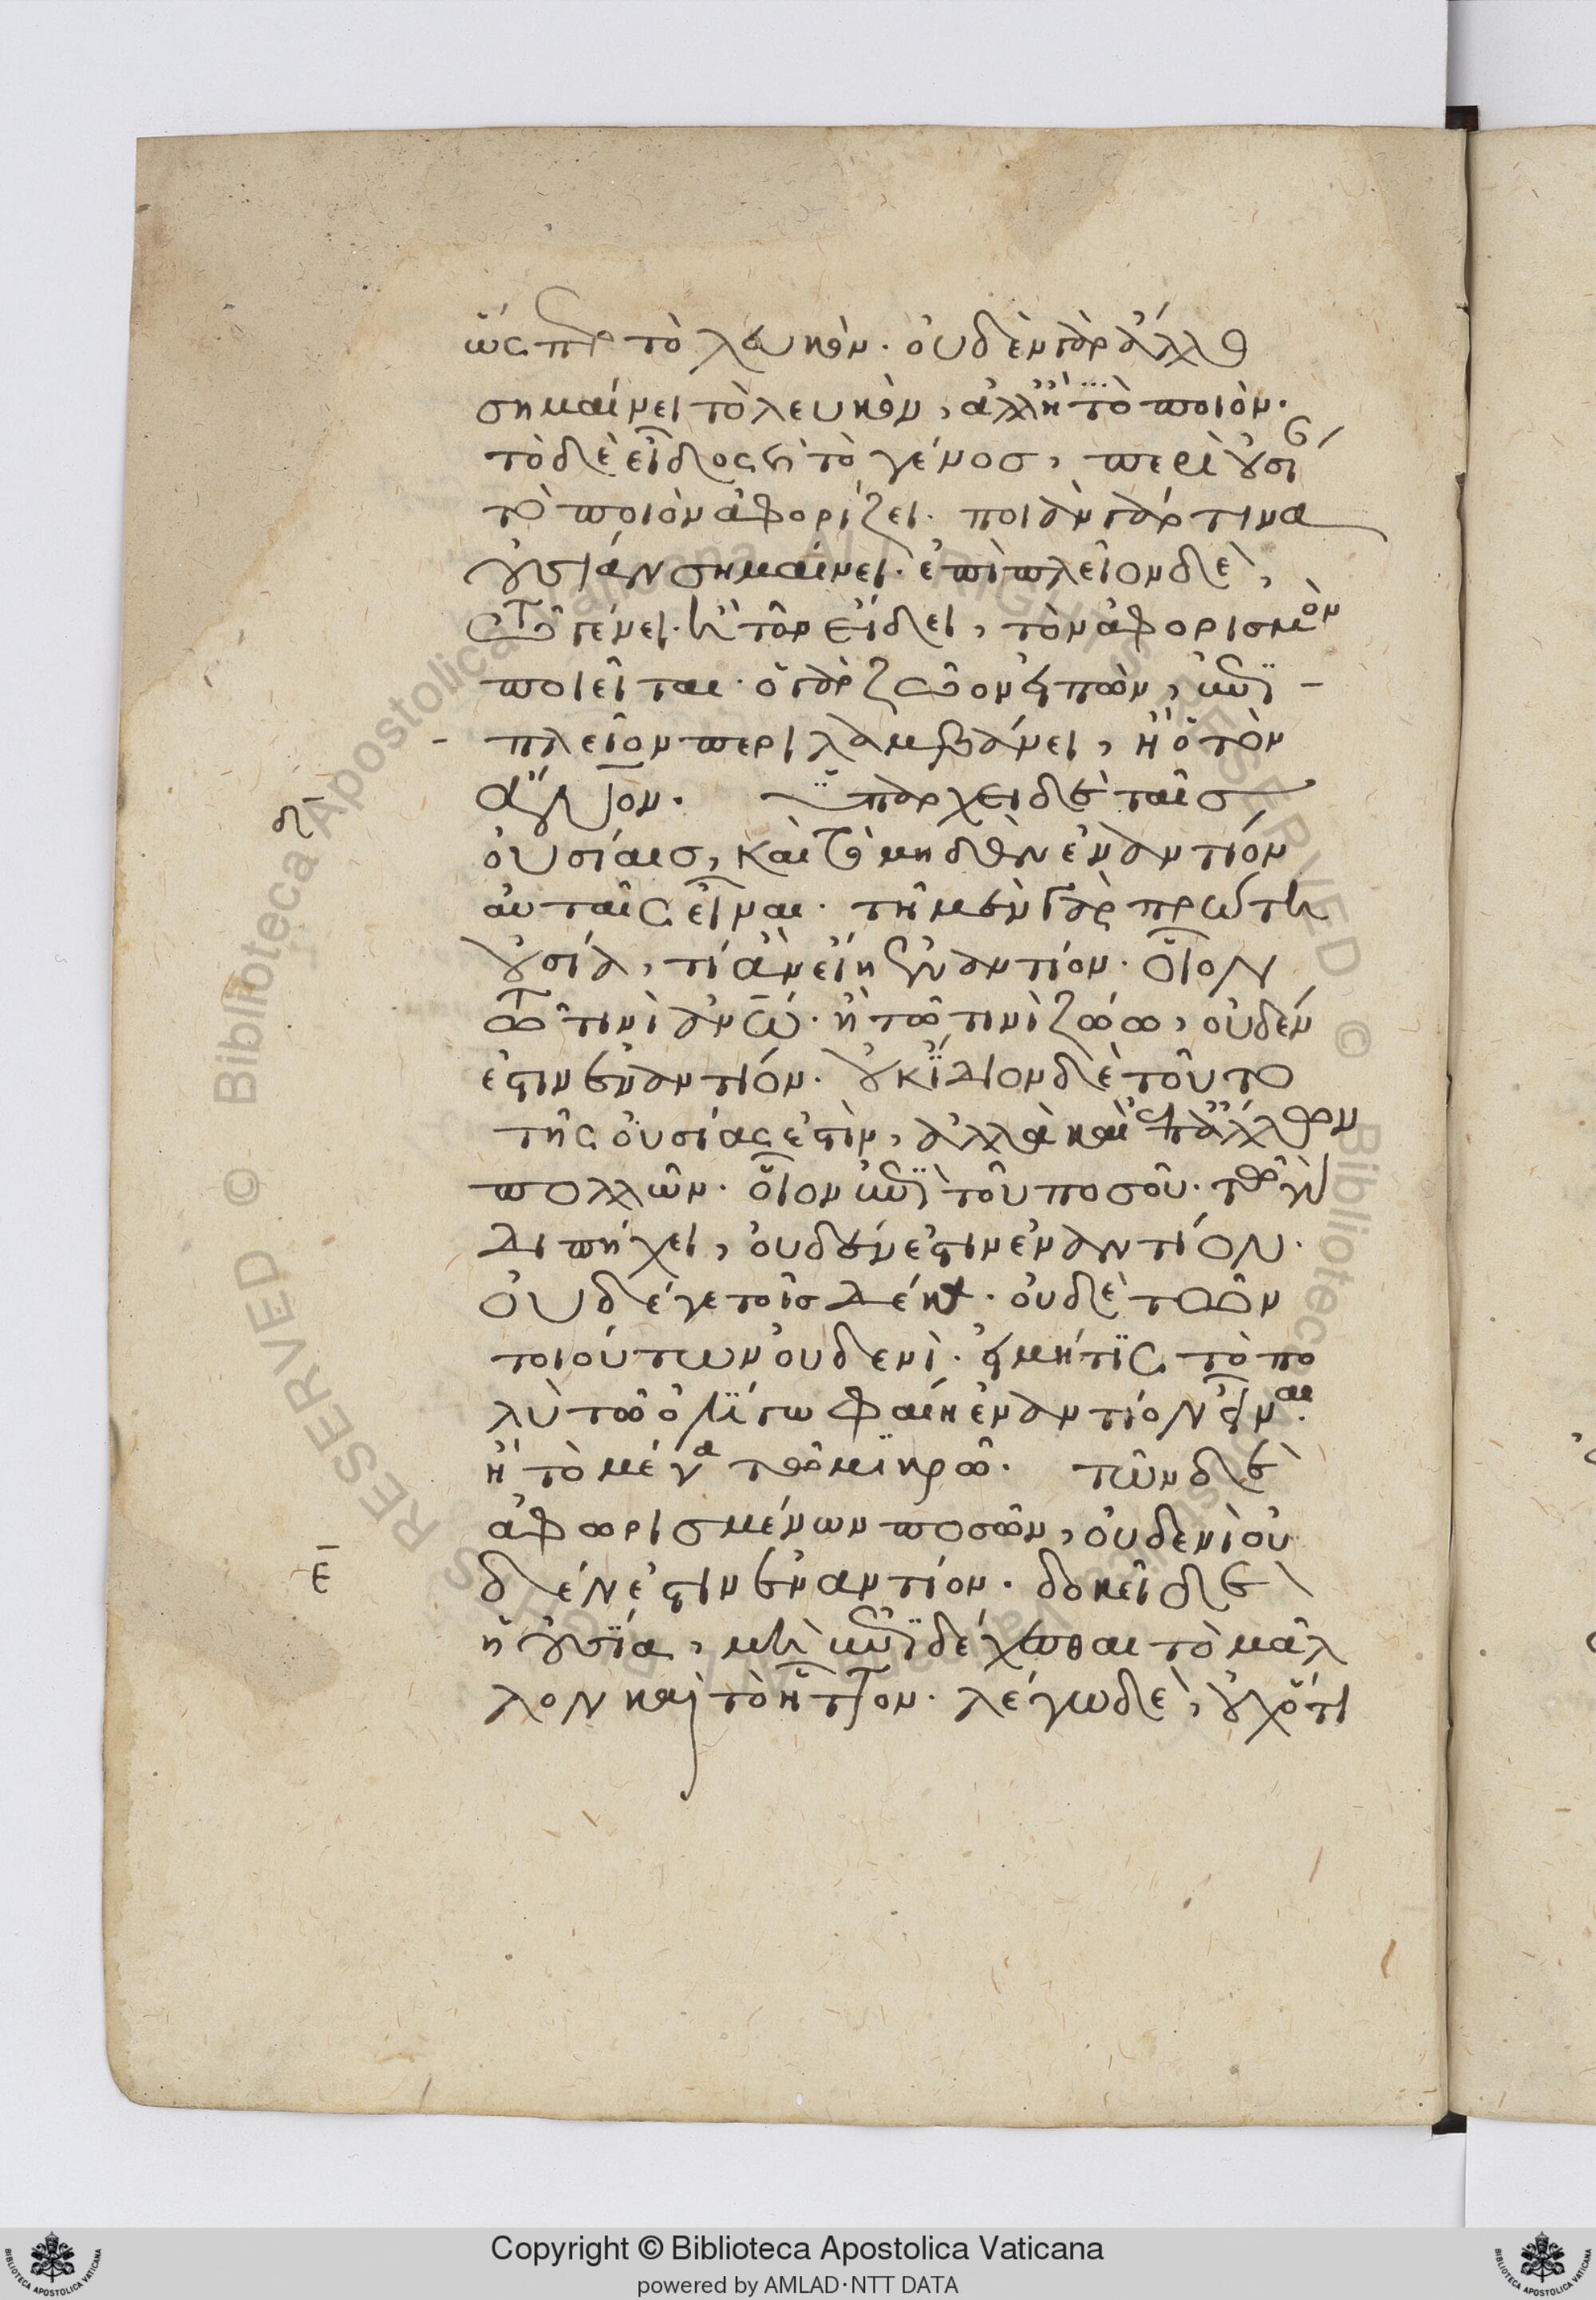 ὥσπερ τὸ λευκόν. οὐδὲν γὰρ ἄλλο
σημαίνει τὸ λευκὸν, ἀλλ' ἢ τὸ ποιόν.
τὸ δὲ εἶδος καὶ τὸ γένος, περὶ οὐσί
τὸ ποιὸν ἀφορίζει. ποιὰν γάρ τινα
οὐσίαν σημαίνει. ἐπὶ πλεῖον δὲ,
τῷ γένει. ἢ τῷ εἴδει, τὸν ἀφορισμὸν
ποιεῖται. ὁ γὰρ ζῷον εἰπὼν, ἐπὶ -
- πλεῖον περιλαμβάνει, ἢ ὁ τὸν
ἄνον. ὑπάρχει δὲ ταῖς
δ οὐσίαις, καὶ τὸ μηδὲν ἐναντίον
αὐταῖς εἶναι. τῇ μὲν γὰρ πρώτη
οὐσία, τί ἂν εἴη ἐναντίον. οἷον
τῷ τινὶ ἀνω. ἢ τῷ τινὶ ζώω, οὐδέν
ἐστιν ἐναντίον. οὐκ ἴδιον δὲ τοῦτο
τῆς οὐσίας ἐστὶν, ἀλλὰ καὶ ἐπ' ἄλλων
πολλῶν. οἷον ἐπὶ τοῦ ποσοῦ. τῷ γὰρ
διπήχει, οὐδέν ἐστιν ἐναντίον.
οὐδέ γε τοῖς δέκα. οὐδὲ τῶν
τοιούτων οὐδενὶ. εἰ μή τις τὸ πο
λὺ τῷ ὀλίγω φαίη ἐναντίον εἶναι.
ἢ τὸ μέγα τῷ μικρῷ. τῶν δὲ
ἀφωρισμένων ποσῶν, οὐδενὶ οὐ
ε δέν ἐστιν ἐναντίον. δοκεῖ δὲ
ἡ οὐσία, μὴ ἐπιδέχεσθαι τὸ μᾶλ
λον καὶ τὸ ἧττον. λέγω δὲ, οὐχ ὅτι
Copyright © Biblioteca Apostolica Vaticana
powered by AMLAD·NTT DATA